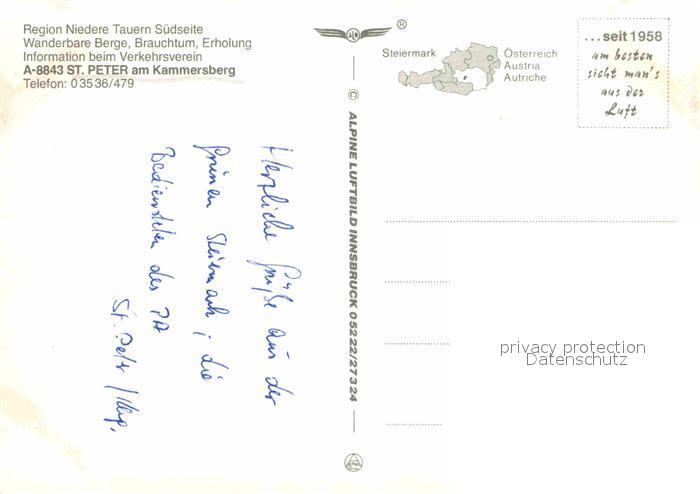 Region Niedere Tauern Südseite
Wanderbare Berge, Brauchtum, Erholung
Information beim Verkehrsverein
A-8843 ST. PETER am Kammersberg
Telefon: 03536/479
Herzliche Grüße aus der
Grünen Steiermark, die
Bediensteten des PA
St. Peter /Kbg.
© ALPINE LUFTBILD INNSBRUCK 05222/27324
®
Steiermark
Österreich
Austria
Autriche
...seit 1958
am besten
sieht man's
aus der
Luft
privacy protection
Datenschutz